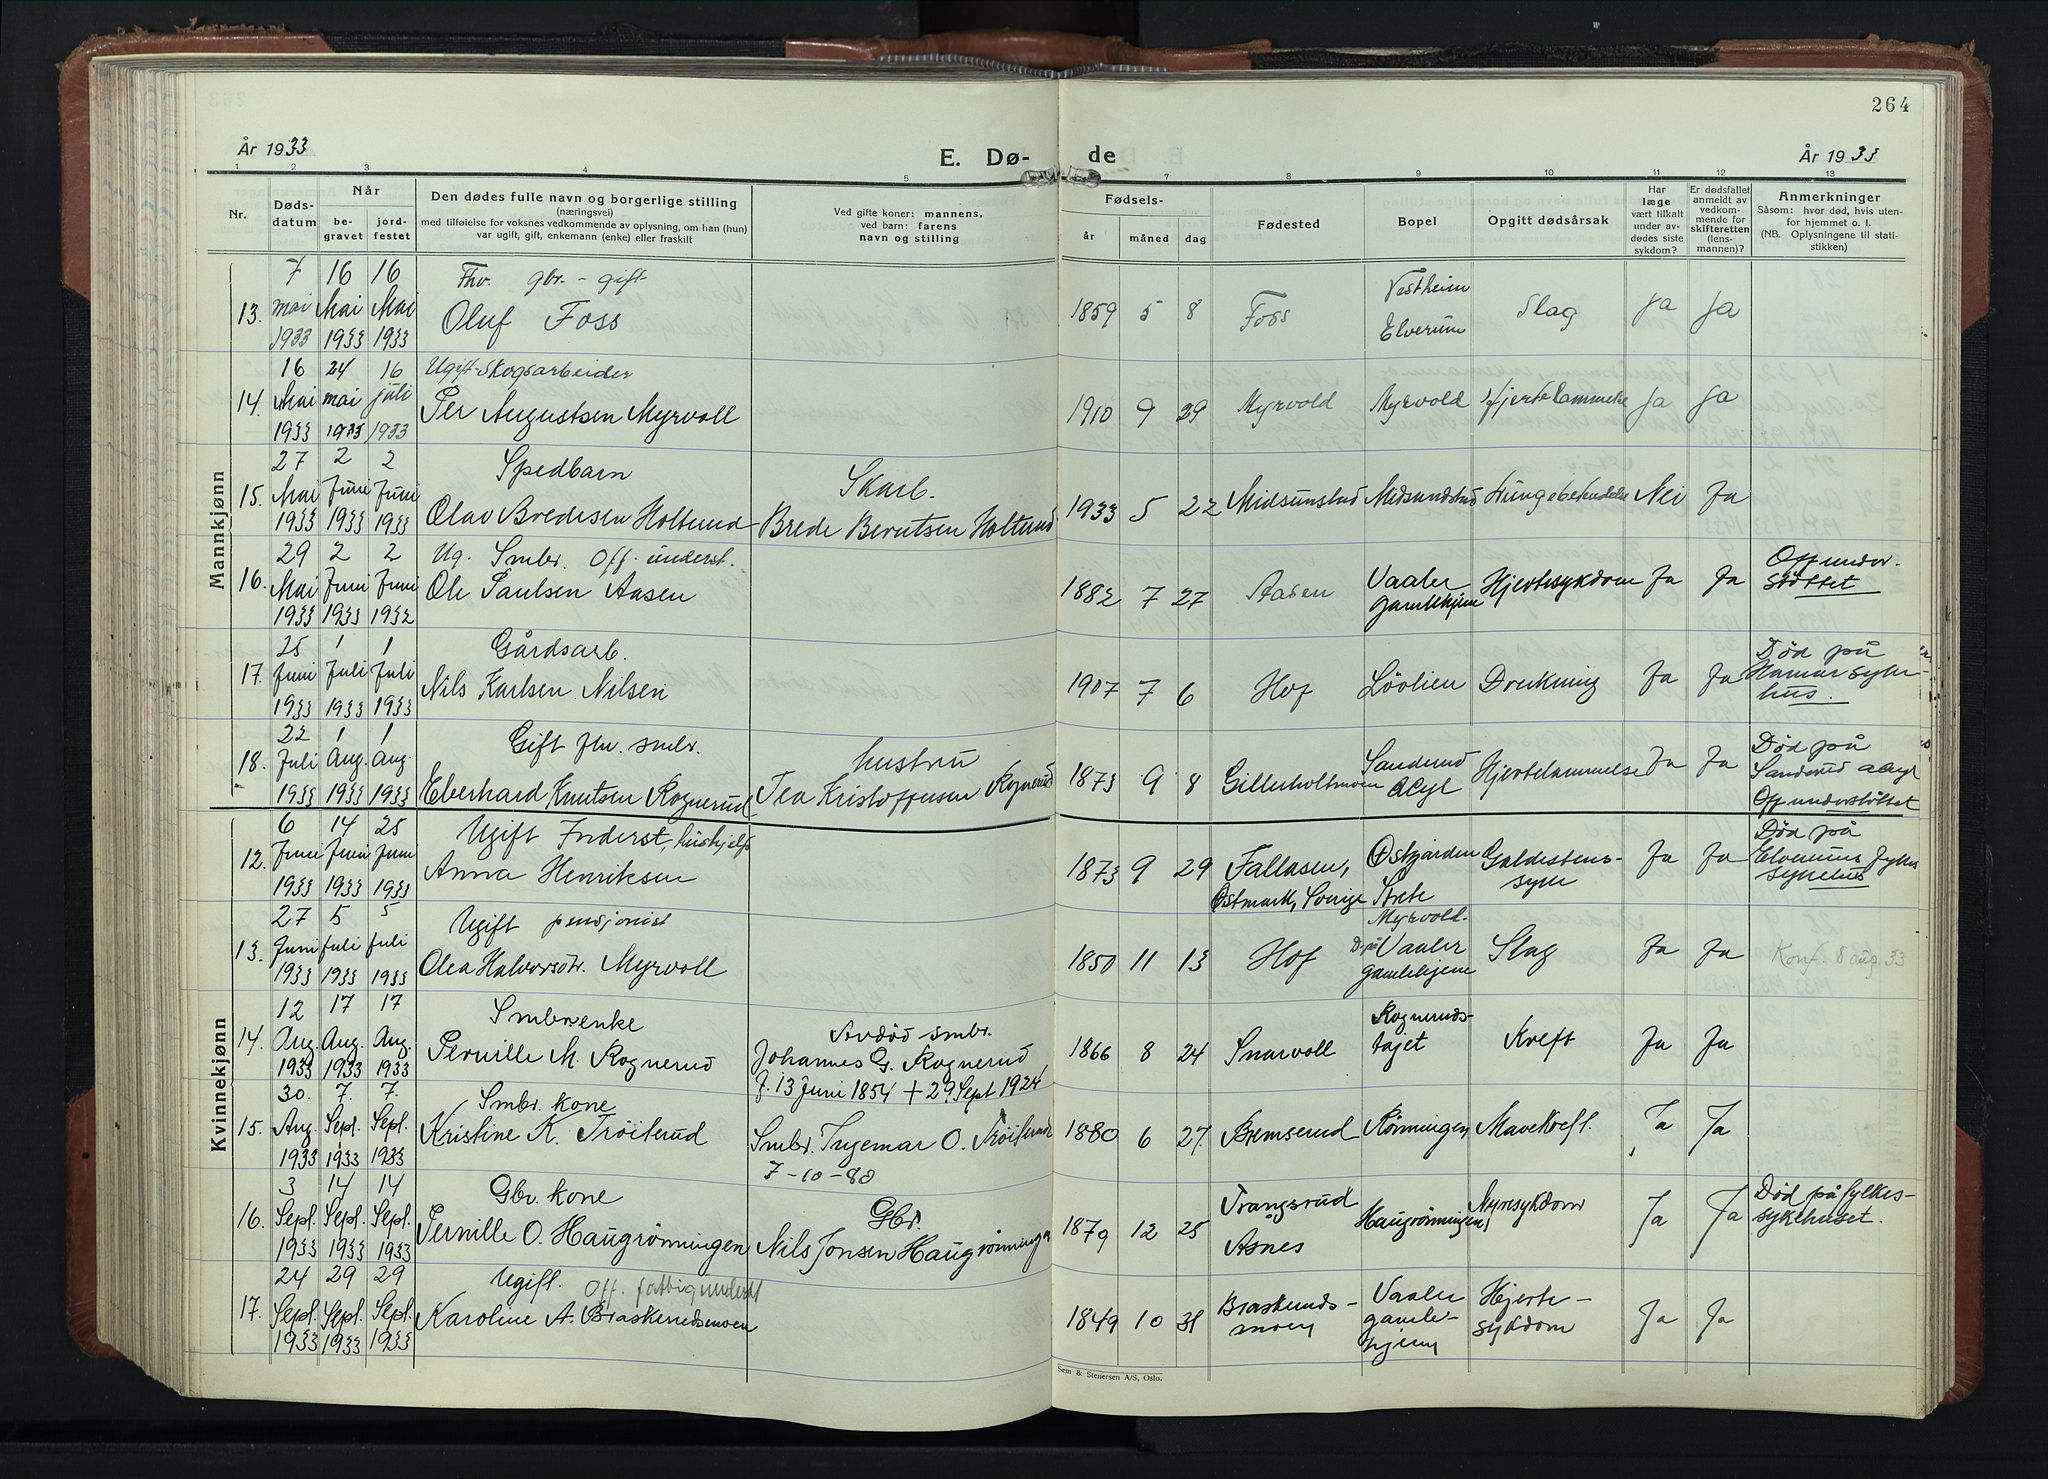 264
År 1933
E. Dø- de
År 1933
1 2 3 4 5 7 8 9 10 11 12 13
Nr.
Døds-
datum
Når
be-
gravet
jord-
festet
Den dødes fulle navn og borgerlige stilling
(næringsvei)
med tilføielse for voksnes vedkommende av oplysning, om han (hun)
var ugift, gift, enkemann (enke) eller fraskilt
Ved gifte koner: mannens,
ved barn: farens
navn og stilling
Fødsels-
år måned dag
Fødested
Bopel
Opgitt dødsårsak
Har
læge
vært tilkalt
under av-
dødes siste
sykdom?
Er dødsfallet
anmeldt av
vedkom-
mende for
skifteretten
(lens-
mannen)?
Anmerkninger
Såsom: hvor død, hvis uten-
for hjemmet o. l.
(NB. Oplysningene til stati-
stikken)
Mannkjønn
13. 7 mai 1933 16 Mai 1933 16 Mai 1933
Fhv. gbr. - gift
Oluf Foss
1859 5 8 Foss
Vestheim
Elverum
Slag Ja Ja
14. 16 Mai 1933 24 mai 1933 16 juli 1933
Ugift Skogsarbeider
Per Augustsen Myrvoll
1910 9 29 Myrvold Myrvold Hjertelammelse Ja Ja
15. 27 Mai 1933 2 Juni 1933 2 Juni 1933
Spedbarn
Olav Bredesen Holtund
Skarb.
Brede Berntsen Holtund
1933 5 22 Midsundstad Midsundstad Lungebetendelse Nei Ja
16. 29 Mai 1933 2 Juni 1933 2 Juni 1932
Ug. Smbr. Off. underst.
Ole Paulsen Aasen
1882 7 27 Aasen
Vaaler
gamlehjem
Hjertesykdom Ja Ja
Off under-
støttet
17. 25 Juni 1933 1 Juli 1933 1 Juli 1933
Gårdsarb.
Nils Karlsen Nilsen
1907 7 6 Hof Løvlien Drukning Ja Ja
Død på
Hamar syke-
hus.
18. 22 Juli 1933 1 Aug. 1933 1 Aug. 1933
Gift fhv. smbr.
Eberhard Knutsen Rognerud
hustru
Tea Kristoffersen Rognerud
1873 9 8 Gillerholtmoen
Sanderud
Acyl
Hjertelammelse Ja Ja
Død på
Sanderud acyl
Off understøttet
Kvinnekjønn
12. 6 Juni 1933 14 Juni 1933 25 Juni 1933
Ugift Inderst, hushjelp
Anna Henriksen
1873 9 29
Fallasen,
Østmark, Sverige
Østgården
Galdestens-
syke
Ja Ja
Død på
Elverums fylkes
sykehus
13. 27 Juni 1933 5 juli 1933 5 juli 1933
Ugift pensjonist
Olea Halvorsdtr. Myrvoll
1850 11 13 Hof
Myrvold.
Vaaler
gamlehjem
Slag Ja Ja
Konf. 8 aug. 33
14. 12 Aug. 1933 17 Aug. 1933 17 Aug. 1933
Smbrenke
Pernille M. Rognerud
Avdød smbr.
Johannes G. Rognerud
f. 13 Juni 1854 + 29 Sept 1924
1866 8 24 Snarvoll
Rogneruds-
tajet
Kreft Ja Ja
15. 30. Aug. 1933 7. Sept. 1933 7. Sept. 1933
Smbr. kone
Kristine K. Trøiterud
Smbr. Ingemar O. Trøiterud
7-10-80
1880 6 27. Bremserud Rønningen Mavekreft. Ja Ja
16. 3 Sept. 1933 14 Sept. 1933 14 Sept. 1933
Gbr. kone
Pernille O. Haugrønningen
Gbr.
Nils Jonsen Haugrønningen
1879 12 25
Vrangsrud
Åsnes
Haugrønningen Nyresykdom Ja Ja
Død på fylkes-
sykehuset.
17. 24 Sept. 1933 29 Sept. 1933 29 Sept. 1933
Ugift. Off. fattigunderst
Karoline A. Braskerudsmoen
1849 10 31
Braskeruds-
moen
Vaaler
gamle-
hjem
Hjerte-
sykdom
Ja Ja
Sem & Stenersen A/S, Oslo.